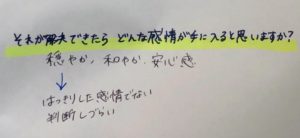 それが解決できたら どんな感情が手に入ると思いますか?
穏やか、和やか、安心感
↓
はっきりした感情でない
判断しづらい